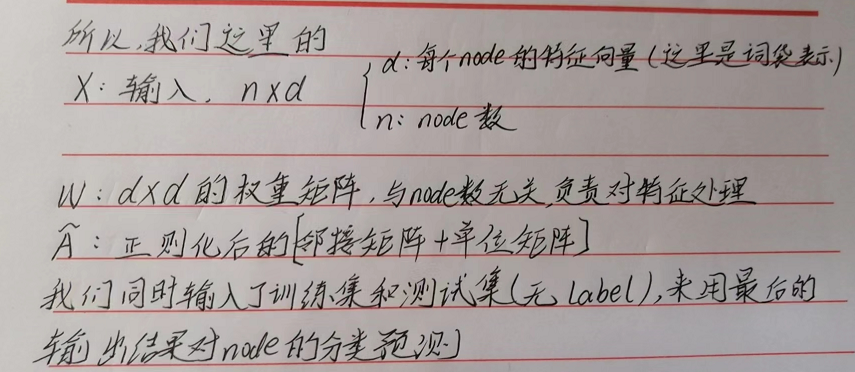 所以,我们这里的
d:每个node的特征向量(这里是词袋表示)
X:输入, n×d
n: node数
W:d×d的权重矩阵,与node数无关,负责对特征处理
Ã:正则化后的[邻接矩阵+单位矩阵]
我们同时输入了训练集和测试集(无Label),来用最后的
输出结果对node的分类预测